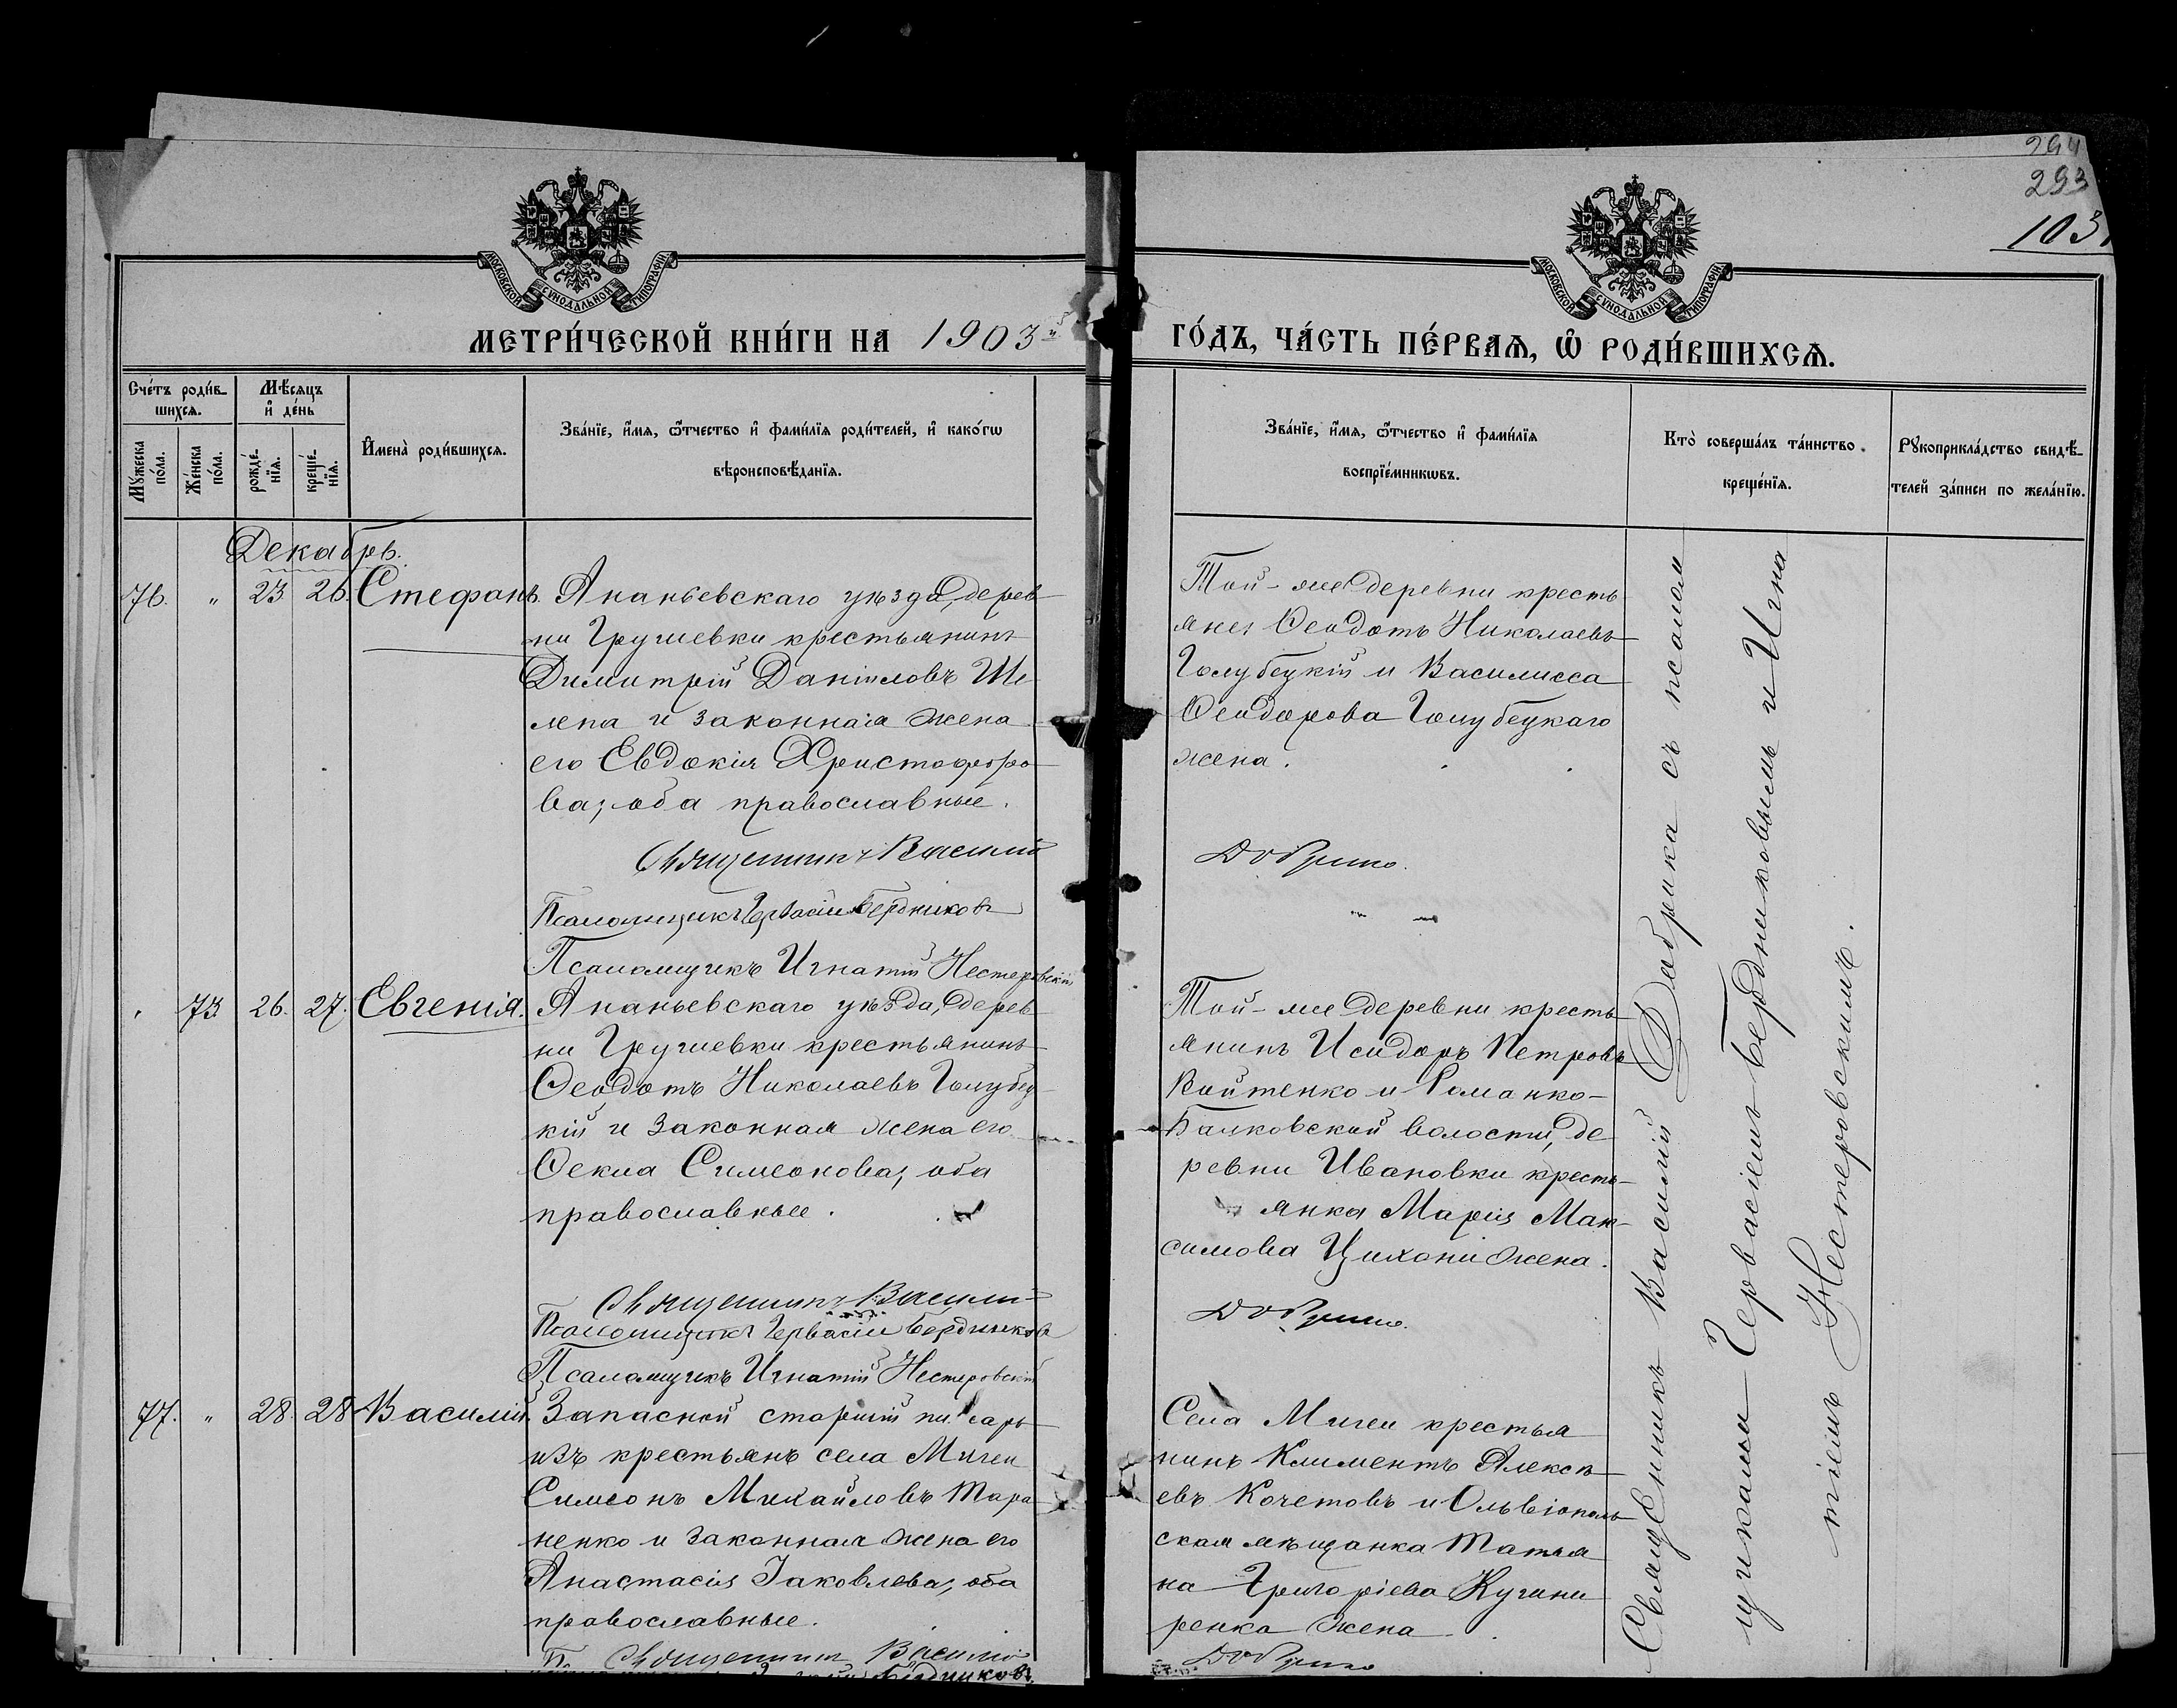 294
293
103
МОСКОВСКОЙ СѴНОДАЛЬНОЙ ТИПОГРАФІИ
МОСКОВСКОЙ СѴНОДАЛЬНОЙ ТИПОГРАФІИ
МЕТРИ́ЧЕСКОЙ КНИ́ГИ НА 1903й
ГО́ДЪ, ЧА́СТЬ ПЕ́РВАѦ, Ѡ РОДИ́ВШИХСѦ.
Сче́тъ роди́в-
шихсѧ.
Мꙋ́жеска
по́ла.
Же́нска
по́ла.
Мѣ́сѧцъ
и҆ де́нь
рожде́-
нїѧ.
креще́-
нїѧ.
И҆мена̀ роди́вшихсѧ.
Зва́нїе, и҆́мѧ, ѻ҆́тчество и҆ фами́лїѧ роди́телей, и҆ како́гѡ
вѣроисповѣ́данїѧ.
Зва́нїе, и҆́мѧ, ѻ҆́тчество и҆ фами́лїѧ
воспрїе́мникѡвъ.
Кто̀ соверша́лъ та́инство
креще́нїѧ.
Рꙋкоприкла́дство свидѣ́-
телей за́писи по жела́нїю.
Декабрь.
76. " 23 26. Стефанъ. Ананьевскаго уѣзда, дерев
ни Грушевки крестьянинъ
Димитрій Даніиловъ Ше
лепа и законная жена
его Евдокія Христофоро
ва, оба православные.
Священникъ Василій
Псаломщикъ Гервасій Бердниковъ
Псаломщикъ Игнатій Нестеровскій
Той-же деревни кресть
яне: Ѳеодотъ Николаевъ
Голубецкій и Василисса
Ѳеодорова Голубецкаго
жена.
Добрино.
" 73 26. 27. Евгенія. Ананьевскаго уѣзда, дерев
ни Грушевки крестьянинъ
Ѳеодотъ Николаевъ Голубец
кій и законная жена его
Ѳекла Симеонова, оба
православные.
Священникъ Василій
Псаломщикъ Гервасій Бердниковъ
Псаломщикъ Игнатій Нестеровскій
Той-же деревни кресть
янинъ Исидоръ Петровъ
Войтенко и Романко-
Балковской волости, де
ревни Ивановки кресть-
янка Марія Мак-
симова Цихони жена.
Добрино.
77. " 28. 28 Василій. Запасной старшій писарь
изъ крестьянъ села Мигеи
Симеонъ Михайловъ Тара
ненко и законная жена его
Анастасія Іаковлева, оба
православные.
Священникъ Василій
Бердниковъ
Села Мигеи крестья
нинъ Климентъ Алексѣ
евъ Кочетовъ и Ольвіополь
ская мѣщанка Татья
на Григоріева Кучини
ренка жена.
Добрино
Священникъ Василій Добрика съ псалом
щиками Гервасіемъ Бердниковымъ и Игна
тіемъ Нестеровскимъ.